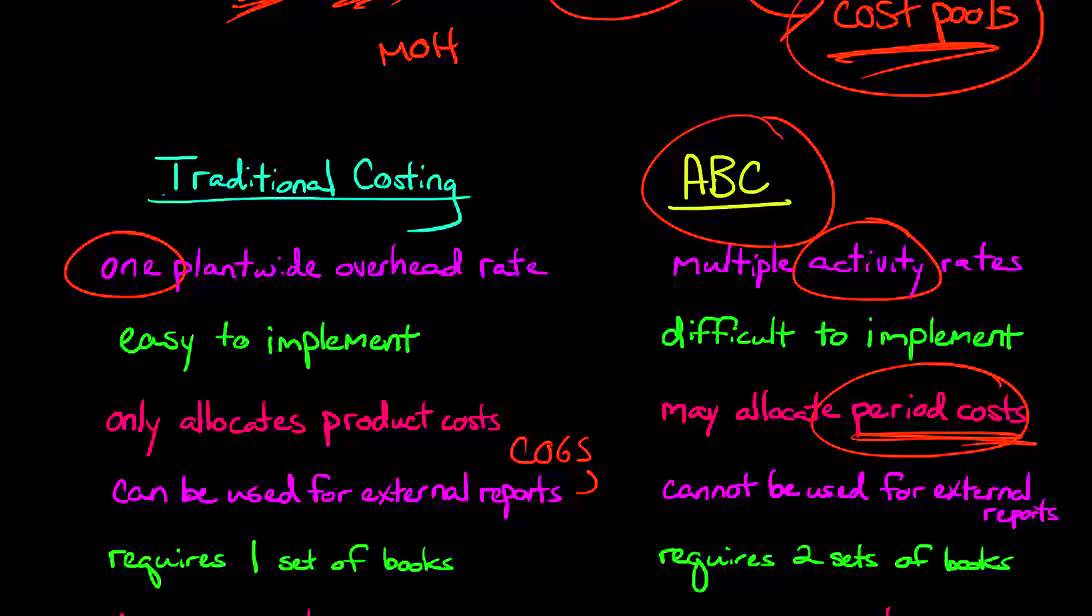 cost pools
MOH
Traditional Costing
ABC
one plantwide overhead rate
multiple activity rates
easy to implement
difficult to implement
only allocates product costs
may allocate period costs
COGS
can be used for external reports
cannot be used for external
reports
requires 1 set of books
requires 2 sets of books